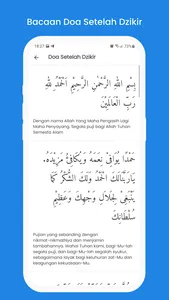 Bacaan Doa Setelah Dzikir
18:27
Doa Setelah Dzikir
بِسْمِ اللهِ الرَّحْمٰنِ الرَّحِيْمِ اَلْحَمْدُ لِلّٰهِ
رَبِّ الْعَالَمِيْنَ
Dengan nama Allah Yang Maha Pengasih Lagi
Maha Penyayang. Segala puji bagi Allah Tuhan
Semesta Alam
حَمْدًا يُوَافِيْ نِعَمَهُ وَيُكَافِئُ مَزِيْدَهُ.
يَارَبَّنَالَكَ الْحَمْدُ وَلَكَ الشُّكْرُ كَمَا
يَنْبَغِيْ لِجَلَالِ وَجْهِكَ وَعَظِيْمِ
سُلْطَانِكَ
Pujian yang sebanding dengan
nikmat-nikmatNya dan menjamin
tambahannya. Wahai Tuhan kami, bagi-Mu-lah
segala puji dan bagi-Mu-lah segala syukur,
sebagaimana layak bagi keluhuran Zat-Mu dan
keagungan kekuasaan-Mu.